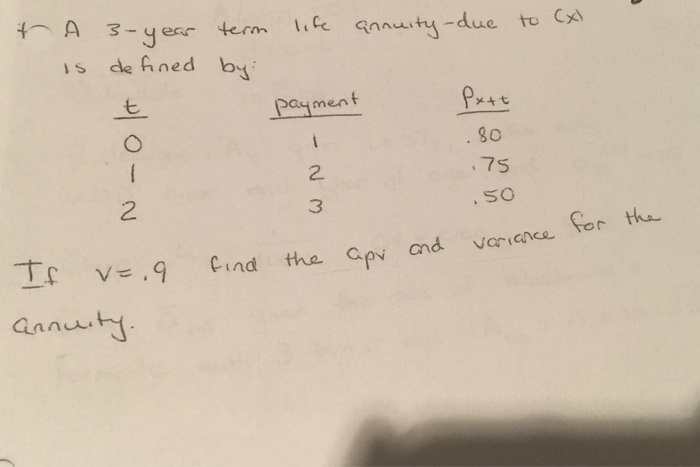 A 3-year term life annuity-due to (x)
is defined by:
t payment Px+t
0 1 .80
1 2 .75
2 3 .50
If v=.9 find the apv and variance for the
annuity.